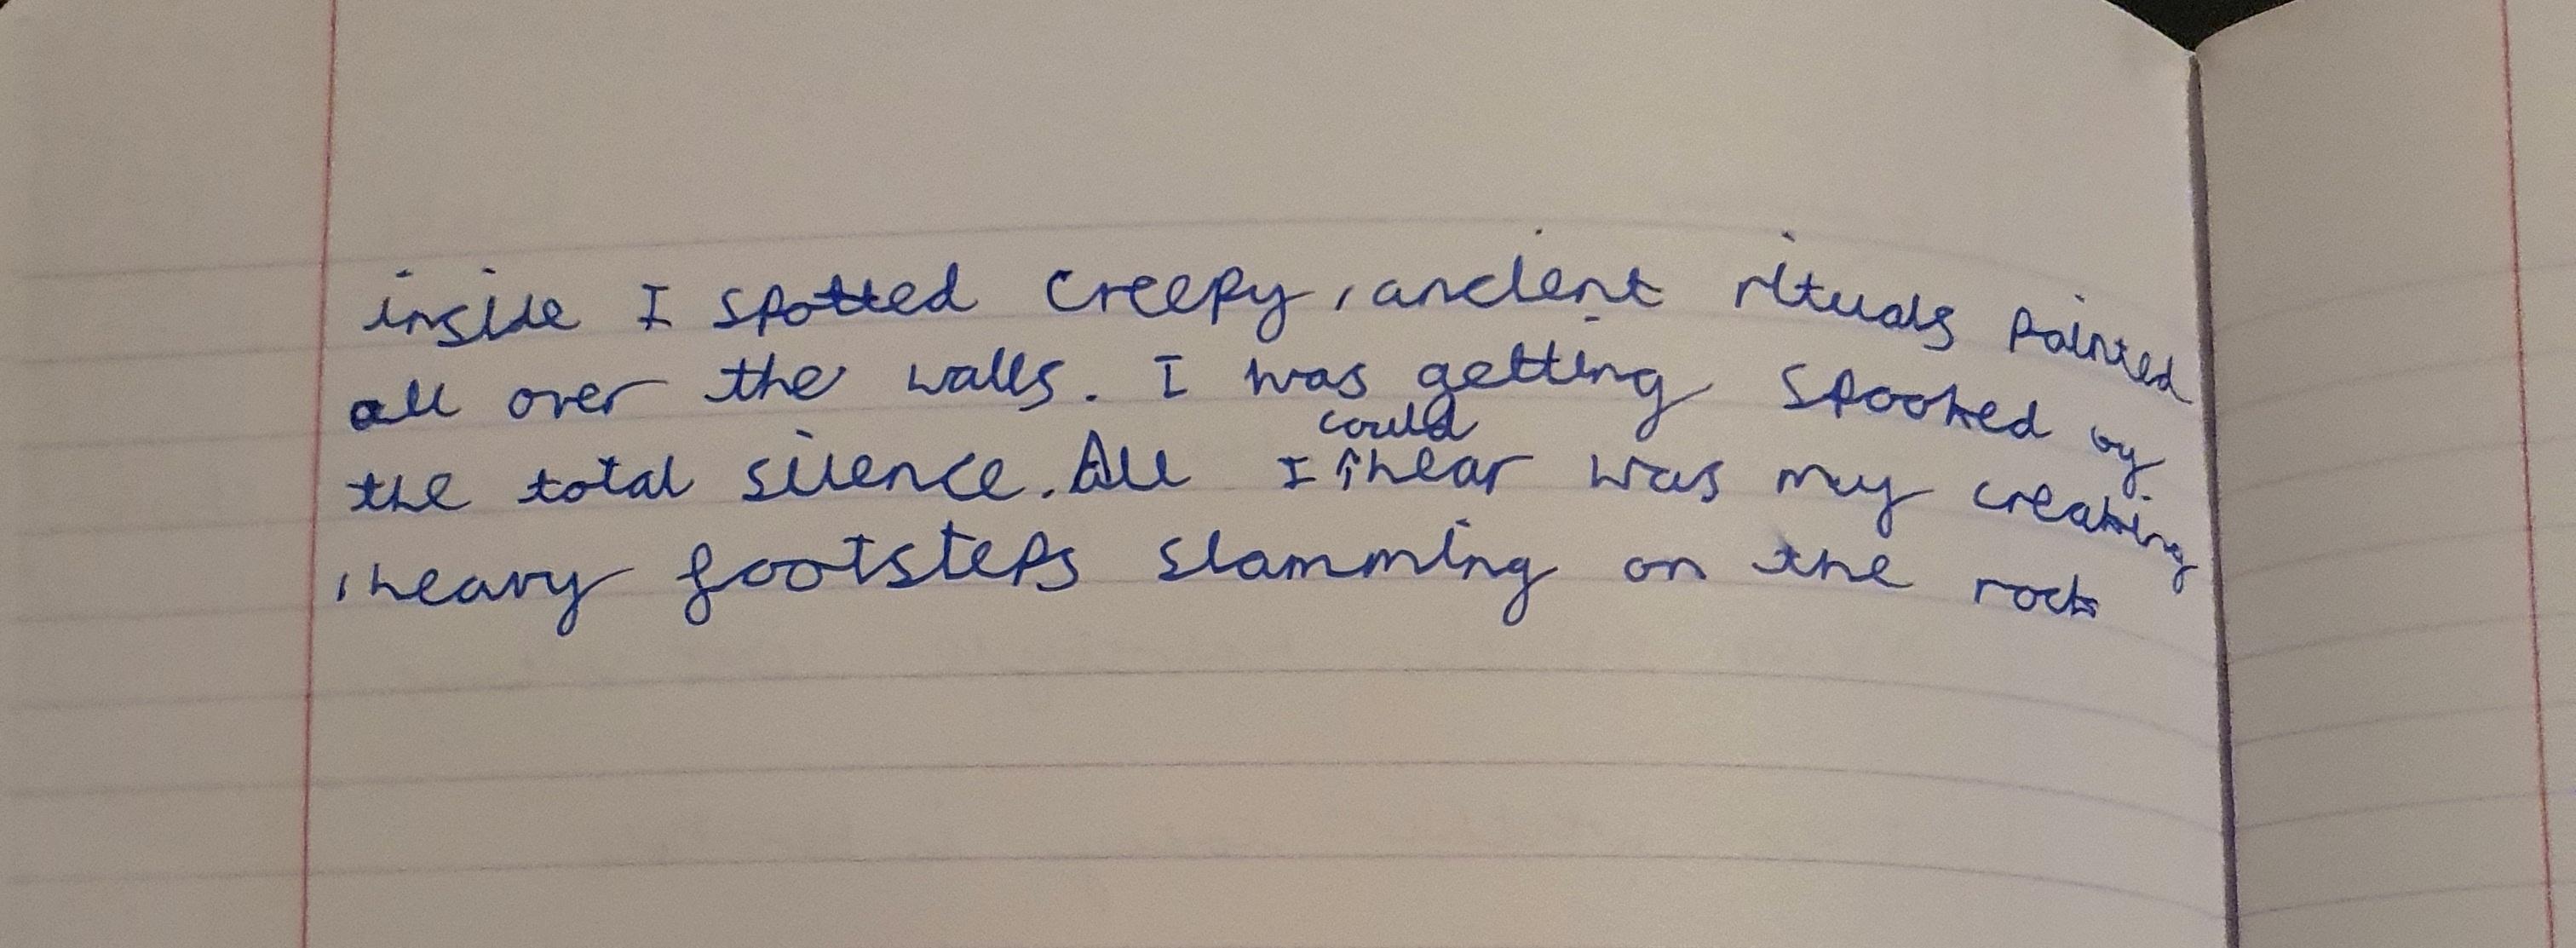 inside I spotted creepy, ancient rituals painted
all over the walls. I was getting spooked by
the total silence. All I could hear was my creaking
, heavy footsteps slamming on the rock